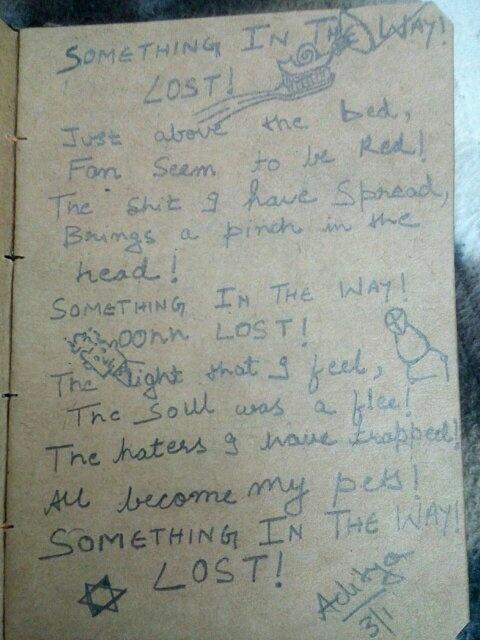 SOMETHING IN THE WAY!
LOST!
Just above the bed,
Fan Seem to be Red!
The shit I have Spread,
Brings a pinch in the
head!
SOMETHING IN THE WAY!
OOHH LOST!
The light that I feel,
The Soul was a flee!
The haters I have trapped!
All become my pets!
SOMETHING IN THE WAY!
LOST!
Aditya
3/1